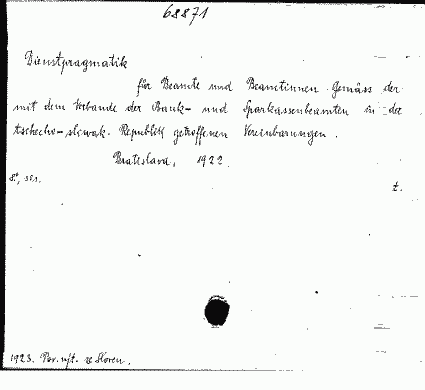 68871
Dienstpragmatik
für Beamte und Beamtinnen. Gemäss der
mit dem Verbande der Bank- und Sparkassenbeamten in der
tschecho-slowak. Republik getroffenen Vereinbarungen.
Bratislava, 1922.
8°,
t.
1923. Pov.